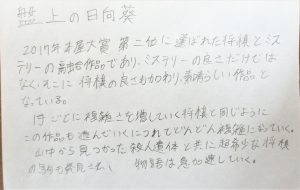 盤上の日向葵
2017年本屋大賞 第二位に選ばれた将棋とミス
テリーの融合作品であり、ミステリーの良さだけでは
なく、そこに将棋の良さも加わり、素晴らしい作品と
なっている。
一手ごとに複雑さを増していく将棋と同じように
この作品も進んでいくにつれてどんどん複雑になっていく。
山中から見つかった殺人遺体と共に超希少な将棋
の駒も発見され、物語は急加速していく。